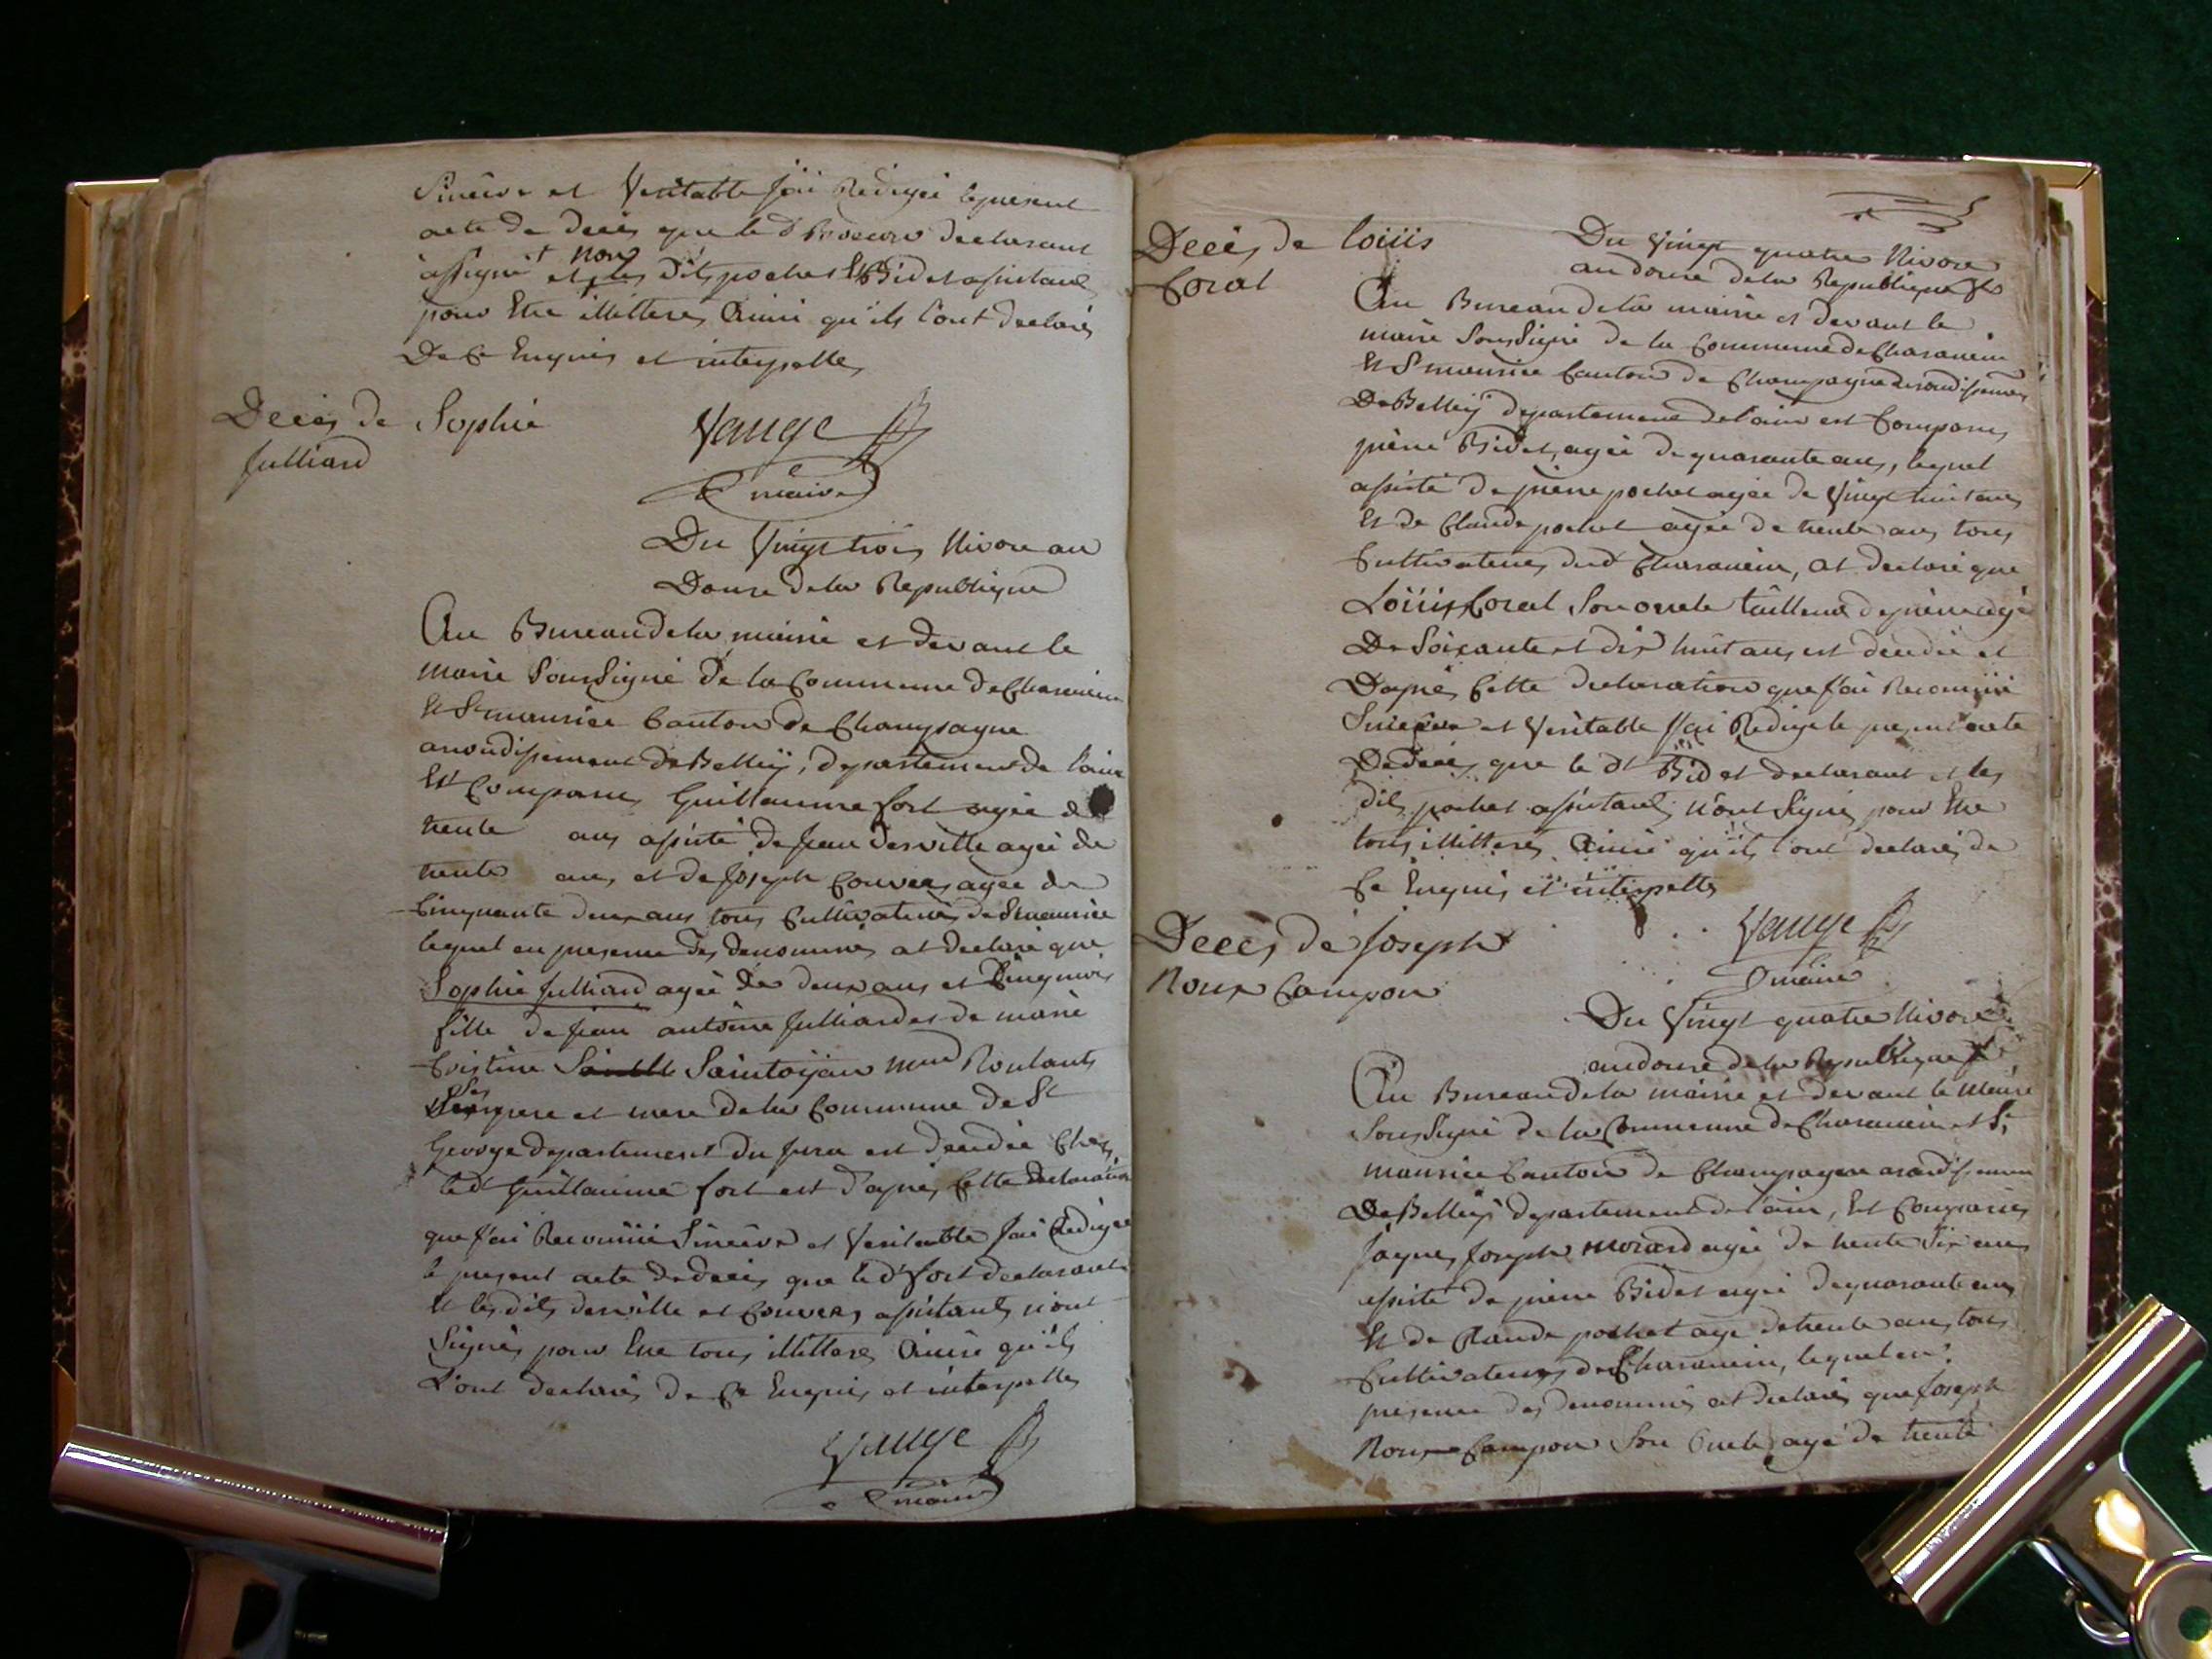 Sincère et Veritable J'ai Redigée le present
acte de decès que le dt declarant
a signé et non les dits pochet et Bidet assistants
pour Etre illitteres Ainsi qu'ils l'ont declarés
De Ce Enquis et interpelles
Decès de Sophie
Julliard
Vauge
maire
Du Vingt trois Nivose an
Douze de la Republique
Au Bureau de la mairie et devant le
maire Soussigné de la Commune de Charancin
Et St maurice Canton de Champagne
arrondissement de Belleÿ, departement de l'ain
Est Comparus Guillaume fort agée de
trente ans assisté de Jean Derville agée de
trente ans et de Joseph Convers agée de
Cinquante deux ans tous Cultivateurs de St maurice
lequel en presence des denommés at declaré que
Sophie Julliard agée de deux ans et Cinq mois
fille de Jean antoine Julliard et de marie
Cristine Saintoÿan Roulants
Ses pere et mere de la Commune de St
George departement du Jura est decedée Chez
le dt Guillaume fort est d'après Cette declaration
que J'ai Reconnüe Sincère et Veritable J'ai Redigée
le present acte de decès que le dt fort declarant
Et les dits derville et Convers assistants n'ont
Signés pour Etre tous illitteres Ainsi qu'ils
L'ont declarés de Ce Enquis et interpelles
Vauge
maire
Decès de loüis
Coral
Du Vingt quatre Nivose
an douze de la Republique
Au Bureau de la mairie et devant le
maire Soussigné de la Commune de Charancin
Et St maurice Canton de Champagne arrondissement
De Belleÿ departement de l'ain est Comparus
pierre Bidet, agée de quarante ans, lequel
assisté de pierre pochet agée de Vingt huit ans
Et de Claude pochet agée de trente ans tous
Cultivateurs dudt Charancin, at declaré que
Loüis Coral Son oncle tailleur de pierre agé
De Soixante et dix huit ans est decedé et
Daprès Cette declaration que J'ai Reconnüe
Sincère et Veritable J'ai Redigé le present acte
De decès que le dt Bidet declarant et les
dits pochet assistants n'ont Signé pour Etre
tous illitteres Ainsi qu'ils l'ont declarés de
Ce Enquis et interpelles
Vauge
maire
Decès de Joseph
Roux Campon
Du Vingt quatre Nivose
an douze de la Republique
Au Bureau de la mairie et devant le Maire
Soussigné de la Commune de Charancin et St
maurice Canton de Champagne arondissement
De Belleÿ departement de l'ain, Est Comparus
Jaques Joseph Morard agée de trente Six ans
assisté de pierre Bidet agée de quarante ans
Et de Claude pochet age de trente ans tous
Cultivateurs de Charancin, lequel en
presence des denommés at declarés que Joseph
Roux Campon Son Oncle agé de trente